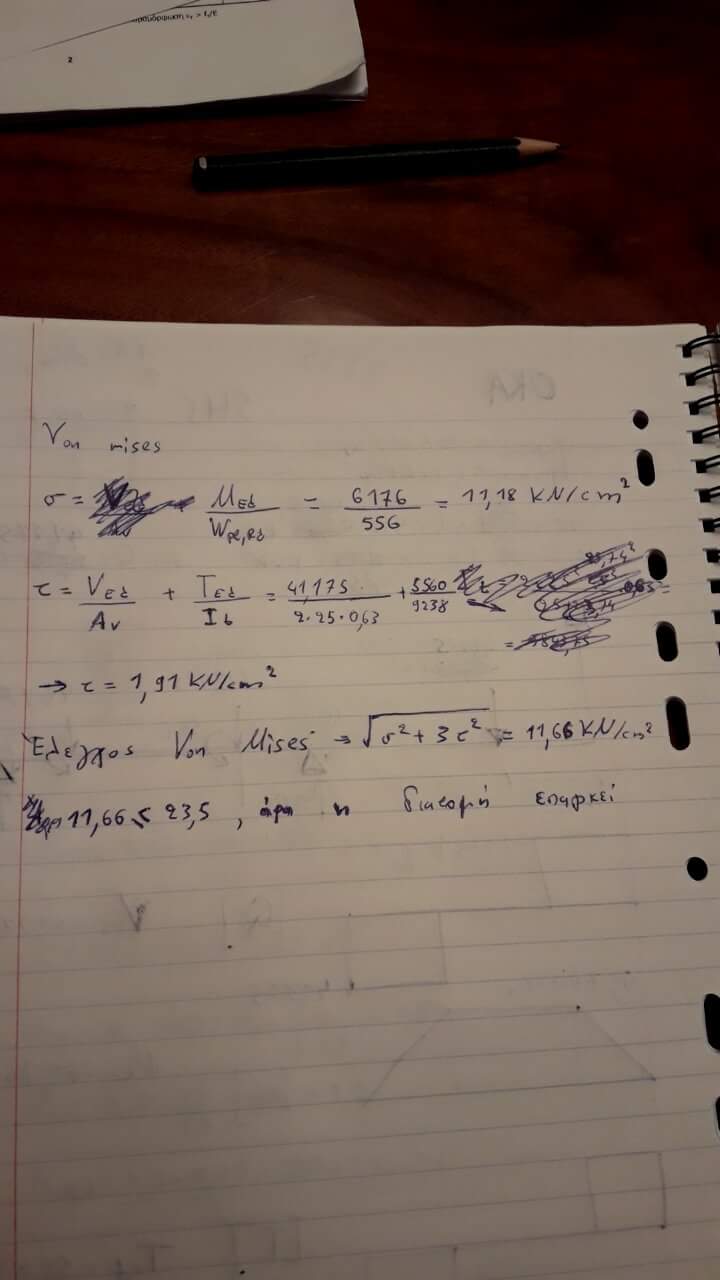 2
Von mises
σ = M_Ed / W_pl,Rd = 6176 / 556 = 11,18 KN/cm²
τ = V_Ed / A_v + T_Ed / I_b = 41,175 / 2·25·0,63 + 5560 / 9238
→ τ = 1,91 KN/cm²
Έλεγχος Von Mises → √σ² + 3τ² = 11,66 KN/cm²
11,66 < 23,5 , άρα η διατομή επαρκεί